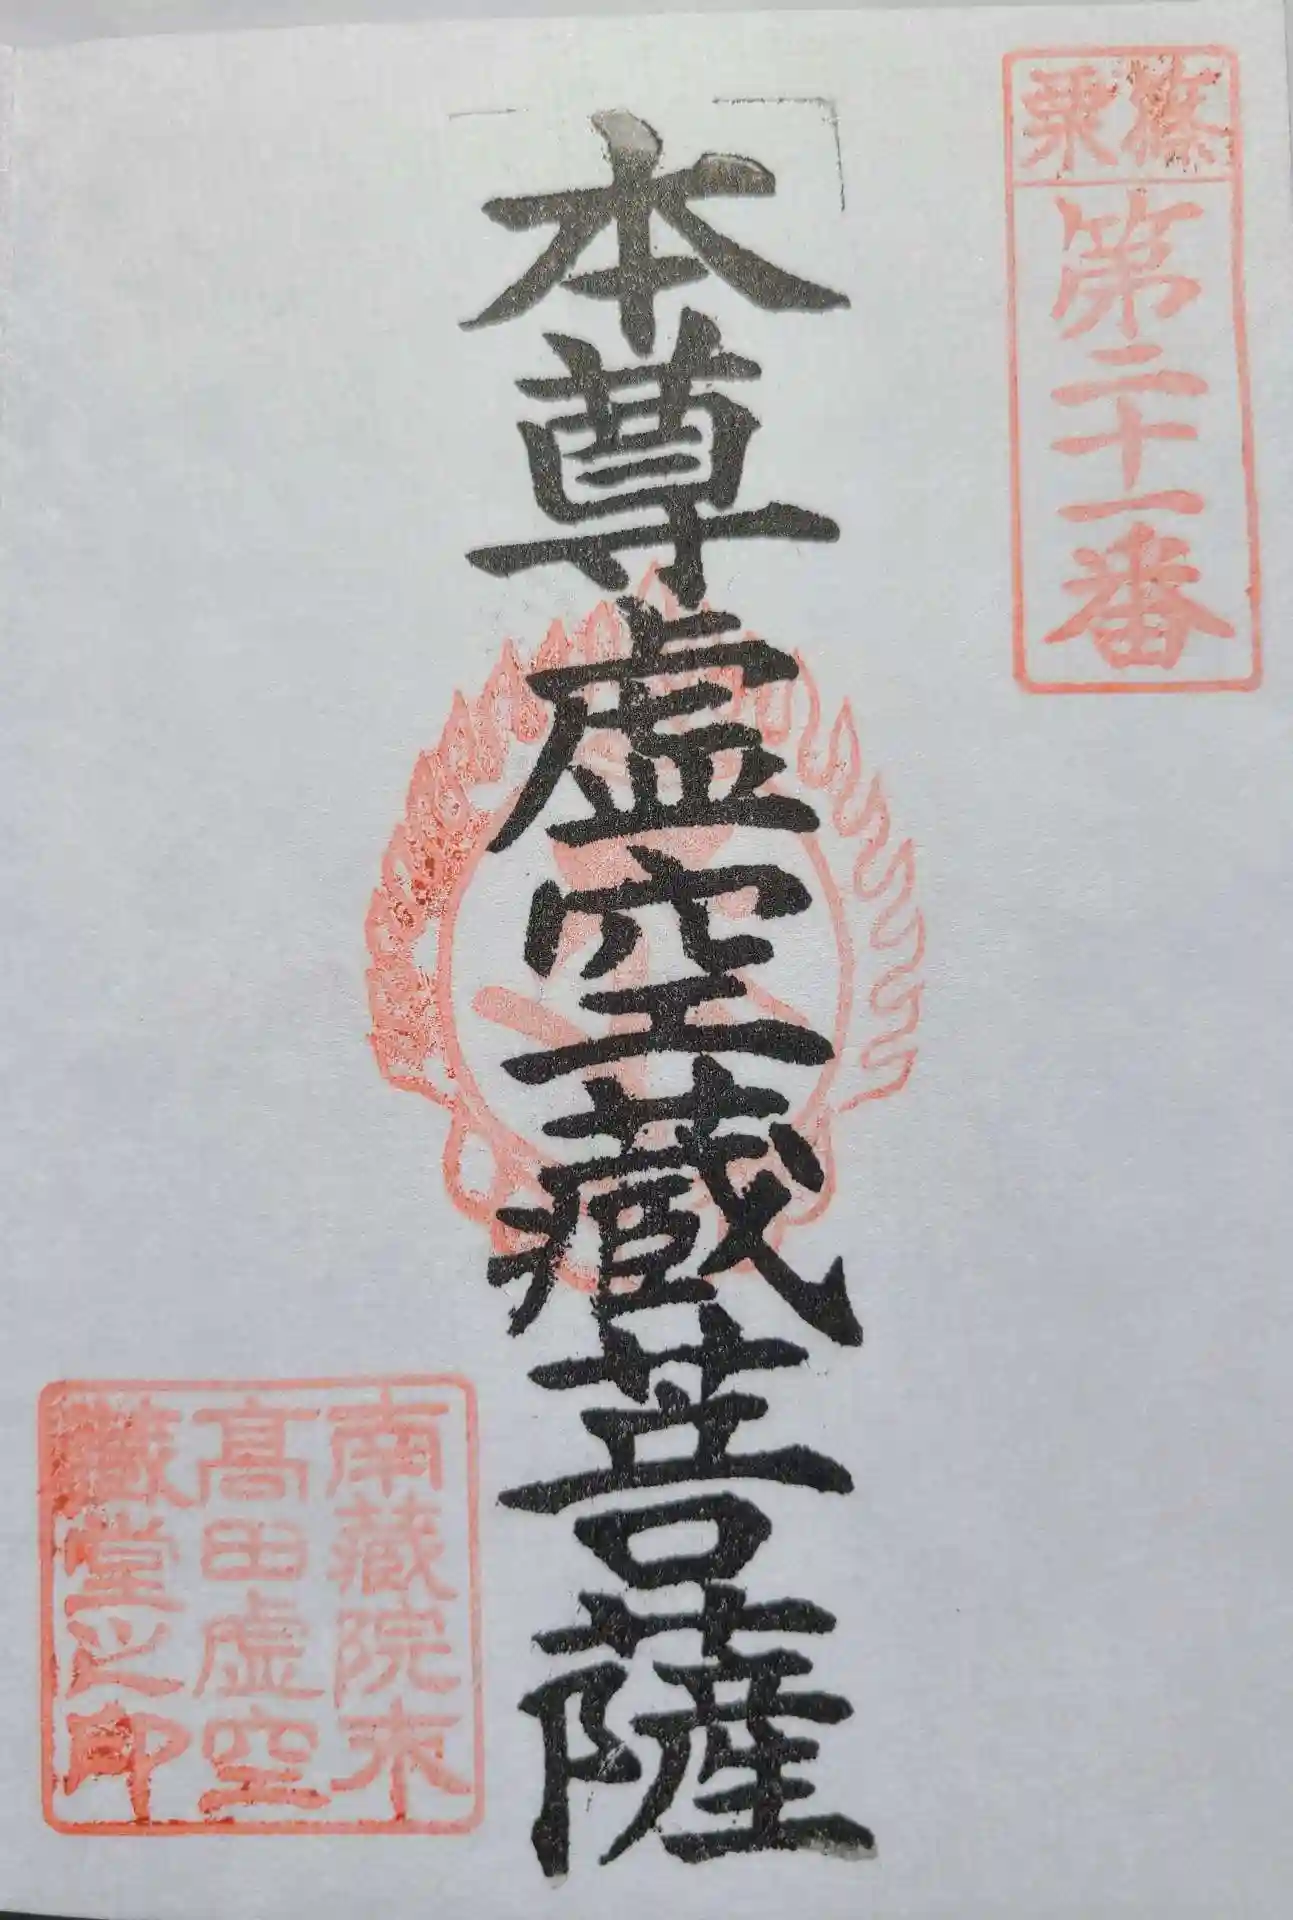 篠栗
第二十一番
本尊虚空蔵菩薩
南蔵院末
高田虚空
蔵堂之印